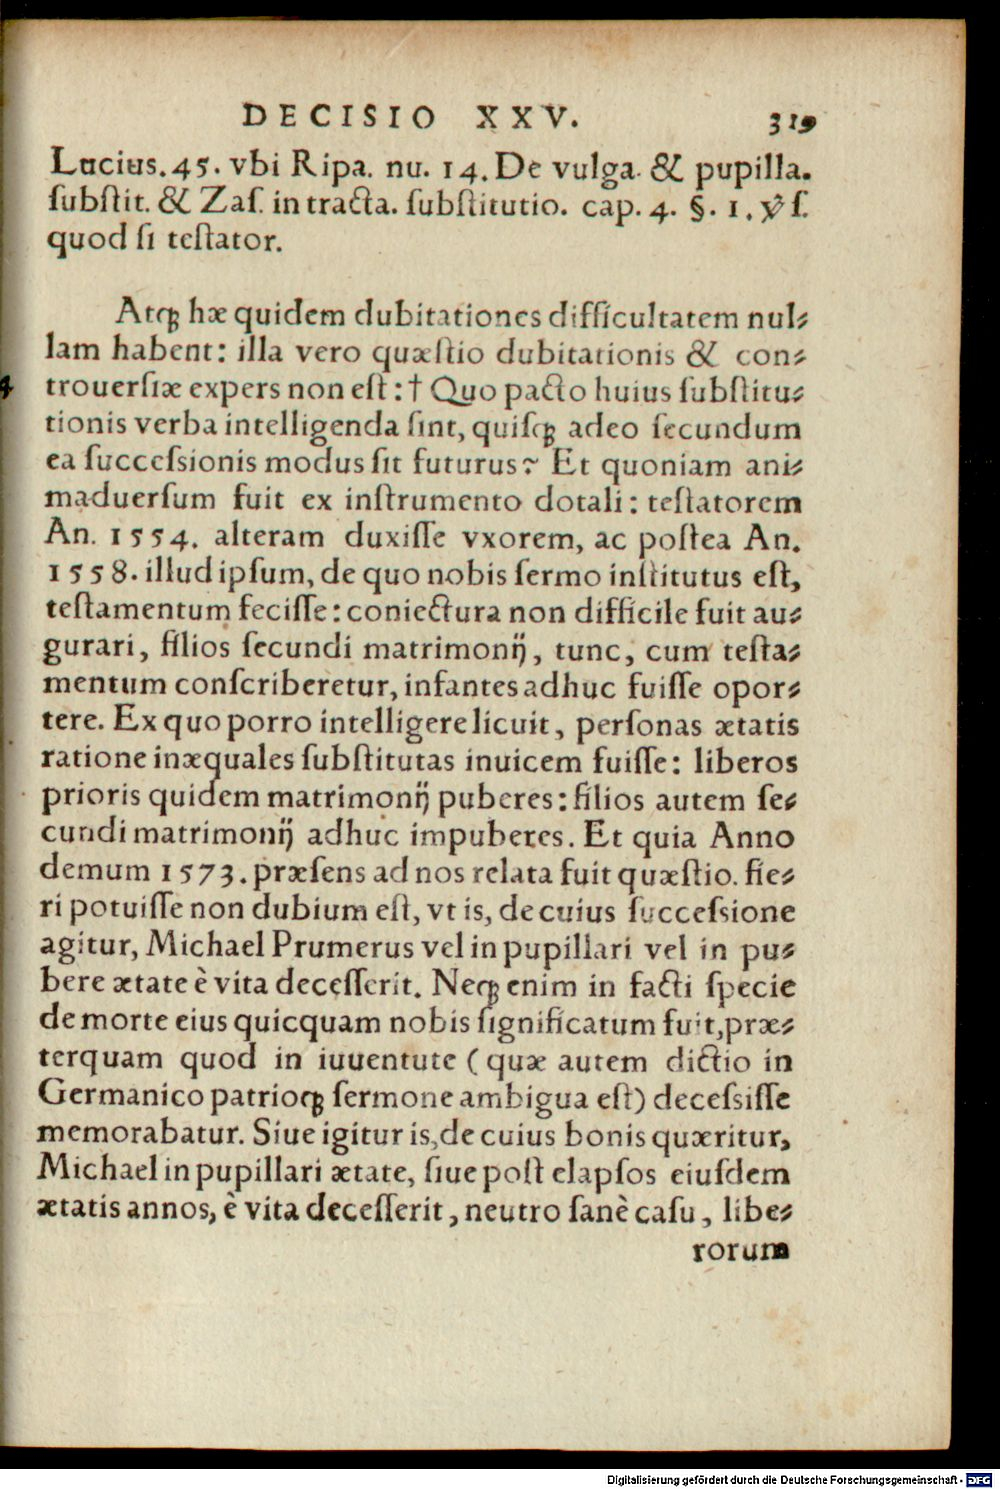 DECISIO XXV. 319
Lucius. 45. vbi Ripa. nu. 14. De vulga. & pupilla.
ſubſtit. & Zaſ. in tracta. ſubſtitutio. cap. 4. §. 1. ℣ ſ.
quod ſi teſtator.
Atqꝫ hæ quidem dubitationes difficultatem nul⸗
lam habent: illa vero quæſtio dubitationis & con⸗
4 trouerſiæ expers non eſt: † Quo pacto huius ſubſtitu⸗
tionis verba intelligenda ſint, quiſqꝫ adeo ſecundum
ea ſucceſsionis modus ſit futurus? Et quoniam ani⸗
maduerſum fuit ex inſtrumento dotali: teſtatorem
An. 1554. alteram duxiſſe vxorem, ac poſtea An.
1558. illud ipſum, de quo nobis ſermo inſtitutus eſt,
teſtamentum feciſſe: coniectura non difficile fuit au⸗
gurari, filios ſecundi matrimonij, tunc, cum teſta⸗
mentum conſcriberetur, infantes adhuc fuiſſe opor⸗
tere. Ex quo porro intelligere licuit, perſonas ætatis
ratione inæquales ſubſtitutas inuicem fuiſſe: liberos
prioris quidem matrimonij puberes: filios autem ſe⸗
cundi matrimonij adhuc impuberes. Et quia Anno
demum 1573. præſens ad nos relata fuit quæſtio. fie⸗
ri potuiſſe non dubium eſt, vt is, de cuius ſucceſsione
agitur, Michael Prumerus vel in pupillari vel in pu⸗
bere ætate è vita deceſſerit. Neqꝫ enim in facti ſpecie
de morte eius quicquam nobis ſignificatum fuit, præ⸗
terquam quod in iuuentute (quæ autem dictio in
Germanico patrioqꝫ ſermone ambigua eſt) deceſsiſſe
memorabatur. Siue igitur is, de cuius bonis quæritur,
Michael in pupillari ætate, ſiue poſt elapſos eiuſdem
ætatis annos, è vita deceſſerit, neutro ſanè caſu, libe⸗
rorum
Digitalisierung gefördert durch die Deutsche Forschungsgemeinschaft - DFG